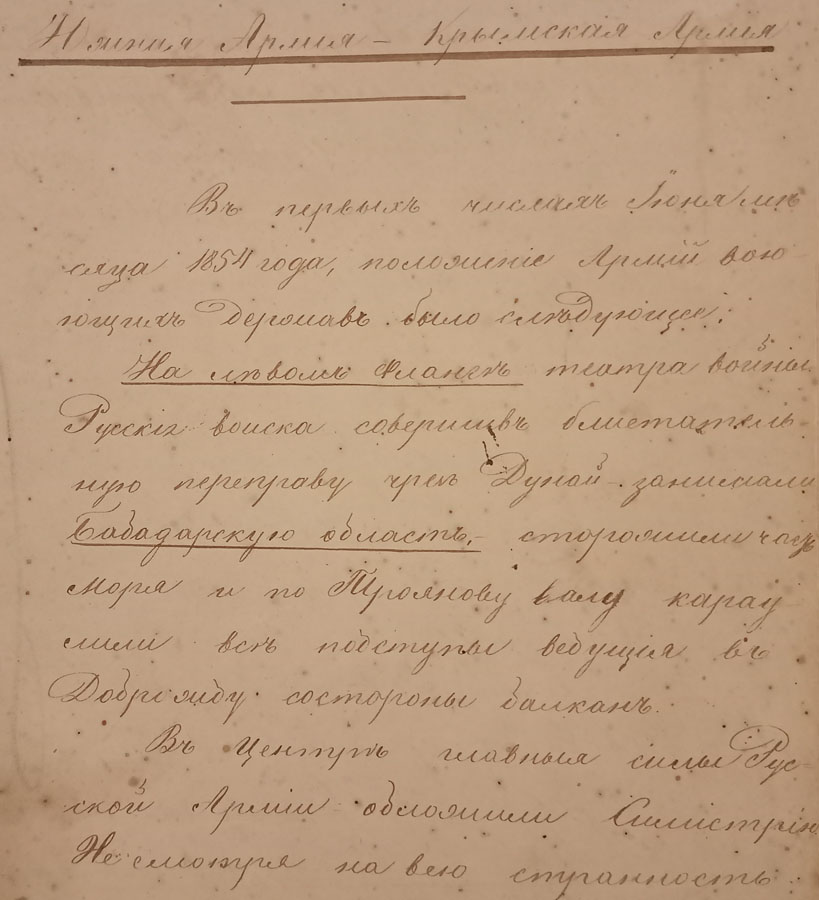 Южная Армия – Крымская Армия
Въ первыхъ числахъ Іюня мѣ
сяца 1854 года, положеніе Армій вою
ющихъ Державъ было слѣдующее:
На лѣвомъ Флангѣ театра войны
Русскія воиска совершивъ блистатель-
ную переправу чрезъ Дунай – занимали
Бабадагскую область, – сторожили часть
Моря и по Троянову валу карау
лили всѣ подступы ведущія въ
Доброжду состороны балканъ.
Въ Центрѣ главныя силы Рус-
ской Арміи обложили Силистрію
Не смотря на всю странность